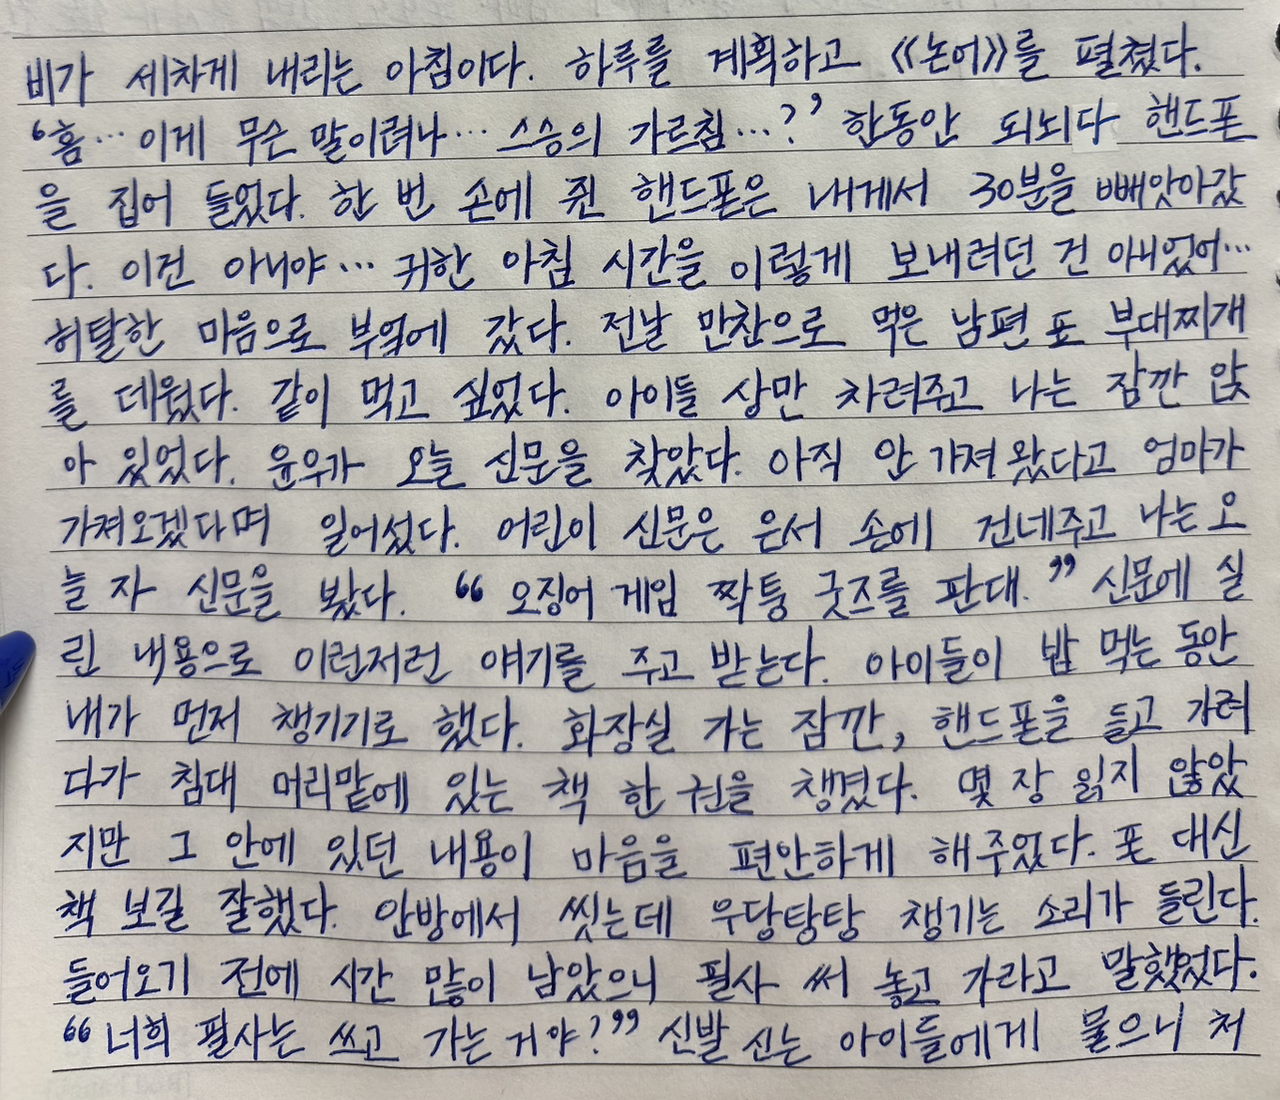 비가 세차게 내리는 아침이다. 하루를 계획하고 《논어》를 펼쳤다.
‘흠… 이게 무슨 말이려나… 스승의 가르침…?’ 한동안 되뇌다 핸드폰
을 집어 들었다. 한 번 손에 쥔 핸드폰은 내게서 30분을 빼앗아갔
다. 이건 아니야… 귀한 아침 시간을 이렇게 보내려던 건 아니었어…
허탈한 마음으로 부엌에 갔다. 전날 만찬으로 먹은 남편 표 부대찌개
를 데웠다. 같이 먹고 싶었다. 아이들 상만 차려주고 나는 잠깐 앉
아 있었다. 윤우가 오늘 신문을 찾았다. 아직 안 가져왔다고 엄마가
가져오겠다며 일어섰다. 어린이 신문은 은서 손에 건네주고 나는 오
늘 자 신문을 봤다. “오징어 게임 짝퉁 굿즈를 판대.” 신문에 실
린 내용으로 이런저런 얘기를 주고 받는다. 아이들이 밥 먹는 동안
내가 먼저 챙기기로 했다. 화장실 가는 잠깐, 핸드폰을 들고 가려
다가 침대 머리맡에 있는 책 한 권을 챙겼다. 몇 장 읽지 않았
지만 그 안에 있던 내용이 마음을 편안하게 해주었다. 폰 대신
책 보길 잘했다. 안방에서 씻는데 우당탕탕 챙기는 소리가 들린다.
들어오기 전에 시간 많이 남았으니 필사 써 놓고 가라고 말했었다.
“너희 필사는 쓰고 가는 거야?” 신발 신는 아이들에게 물으니 처